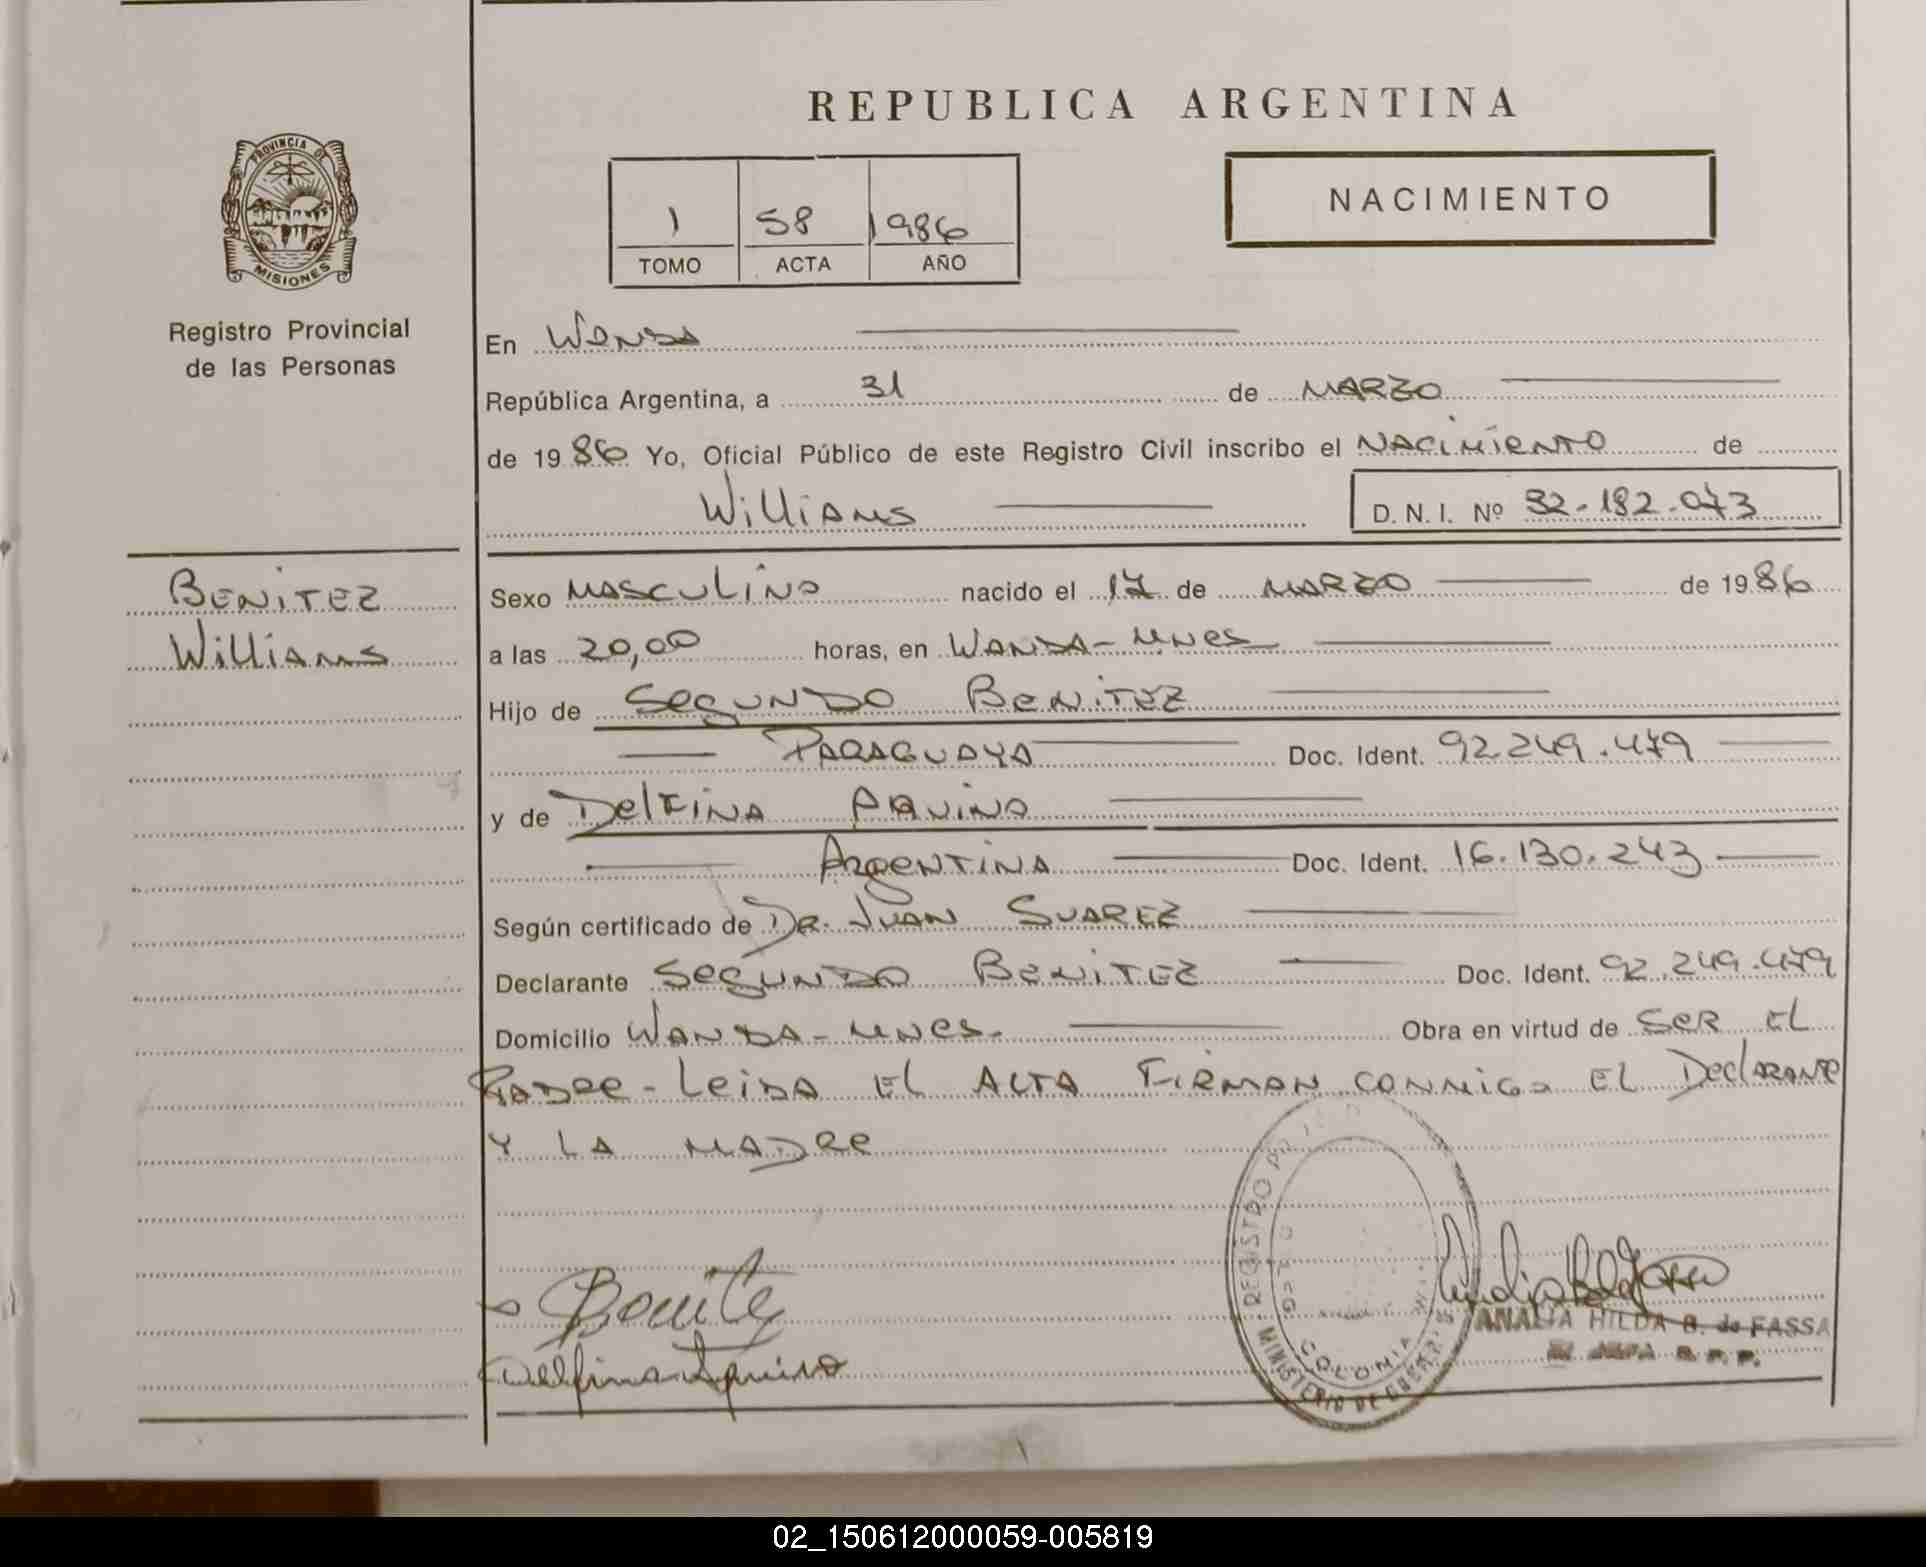 REPUBLICA ARGENTINA
PROVINCIA DE
MISIONES
Registro Provincial
de las Personas
1 58 1986
TOMO ACTA AÑO
NACIMIENTO
En Wanda
República Argentina, a 31 de MARZO
de 1986 Yo, Oficial Público de este Registro Civil inscribo el NACIMIENTO de
Williams D. N. I. Nº 32.182.073
BENITEZ
Williams
Sexo MASCULINO nacido el 17 de MARZO de 1986
a las 20,00 horas, en WANDA-MNES
Hijo de SEGUNDO BENITEZ
PARAGUAYA Doc. Ident. 92.249.479
y de Delfina AQUINO
ARGENTINA Doc. Ident. 16.130.243
Según certificado de Dr. JUAN SUAREZ
Declarante SEGUNDO BENITEZ Doc. Ident. 92.249.479
Domicilio WANDA-MNES. Obra en virtud de SER EL
PADRE - LEIDA EL ACTA FIRMAN CONMIGO EL DECLARANTE
Y LA MADRE
REGISTRO
COLONIA WANDA
MINISTERIO DE GOBER.
Benitez
Delfina Aquino
ANALIA HILDA B. de FASSA
02_150612000059-005819